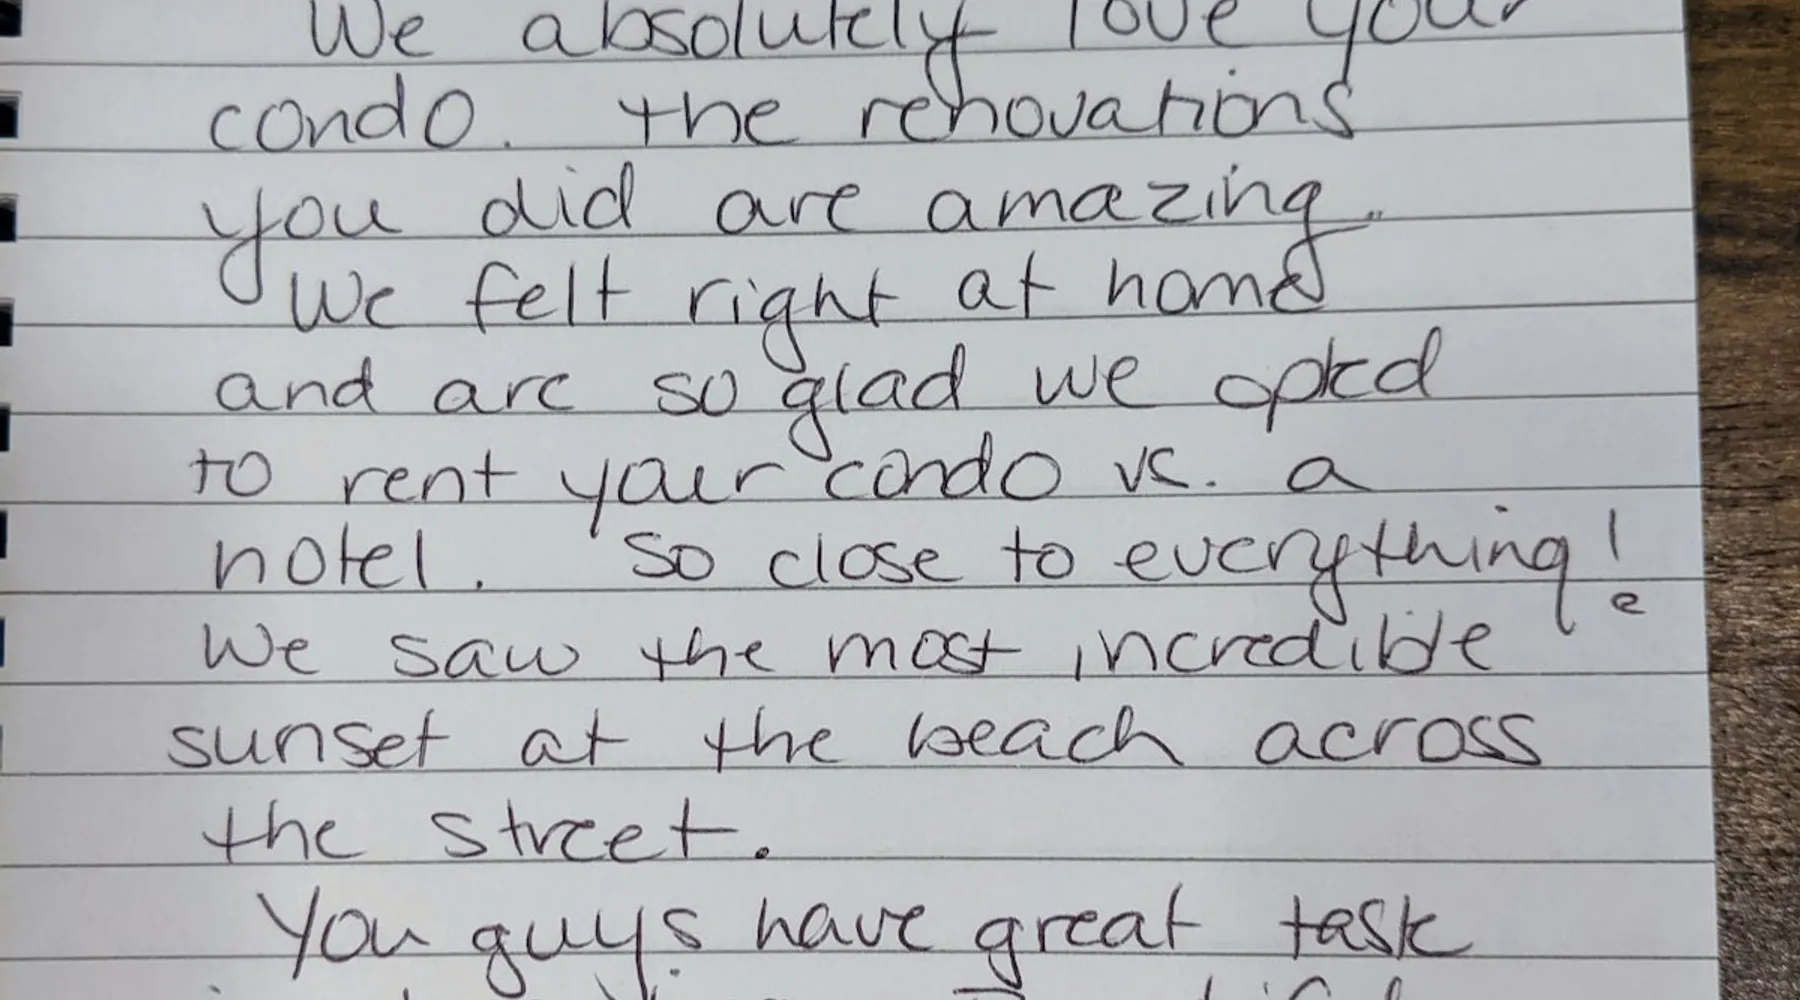 We absolutely love your
condo. the renovations
you did are amazing..
We felt right at home
and are so glad we opted
to rent your condo vs. a
hotel. So close to everything!
We saw the most incredible
sunset at the beach across
the street.
You guys have great task